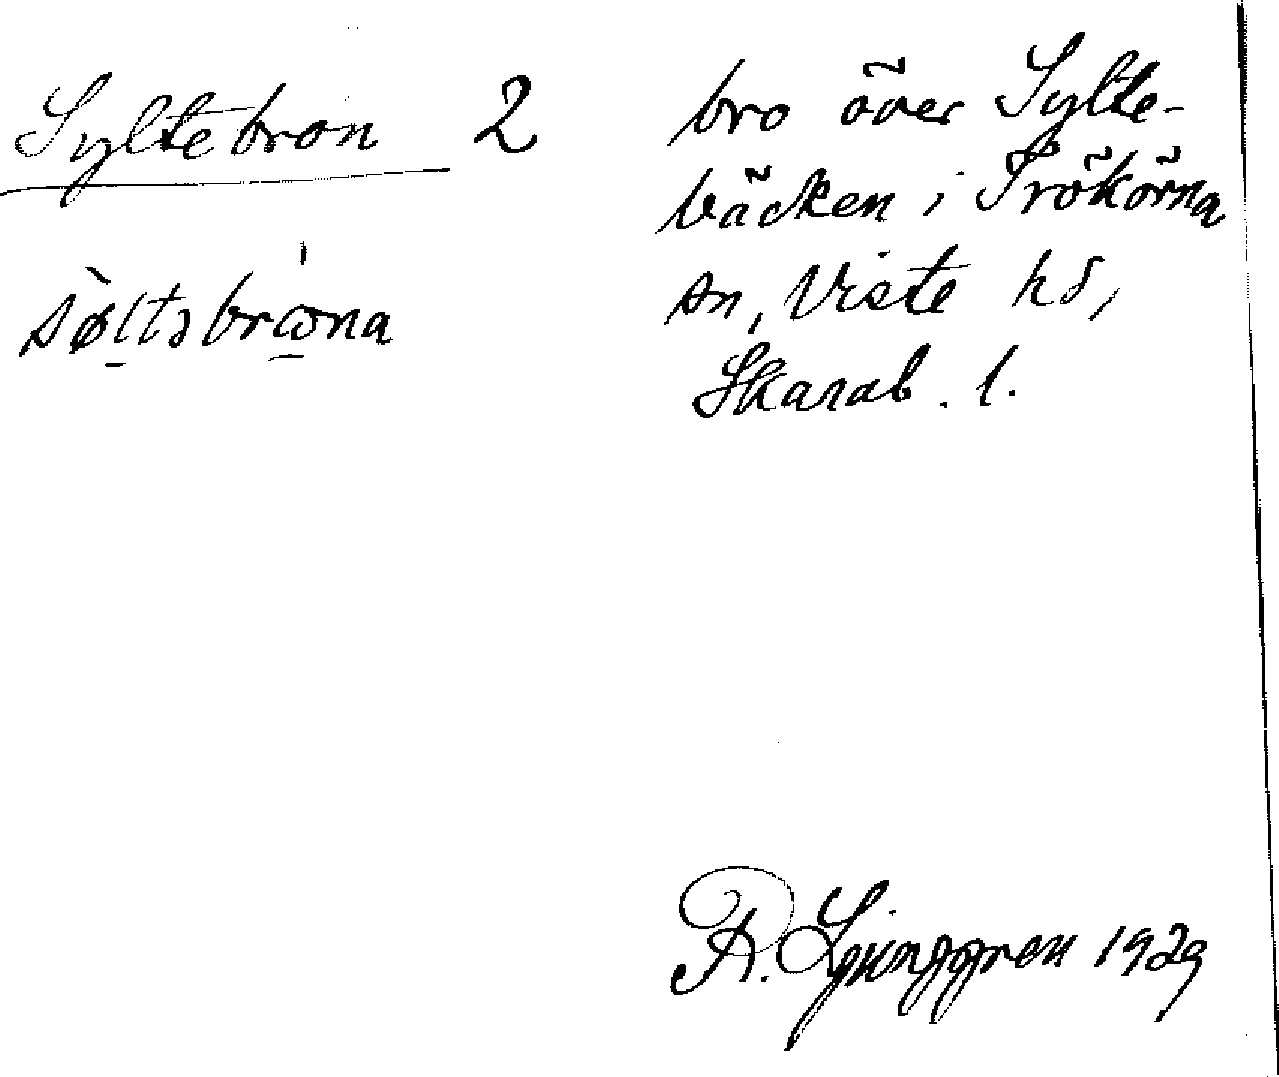 Syltebron 2
sø̀ltəbrɷ̍na
bro över Sylte-
bäcken i Trökörna
sn, Viste hd,
Skarab. l.
R. Ljunggren 1929